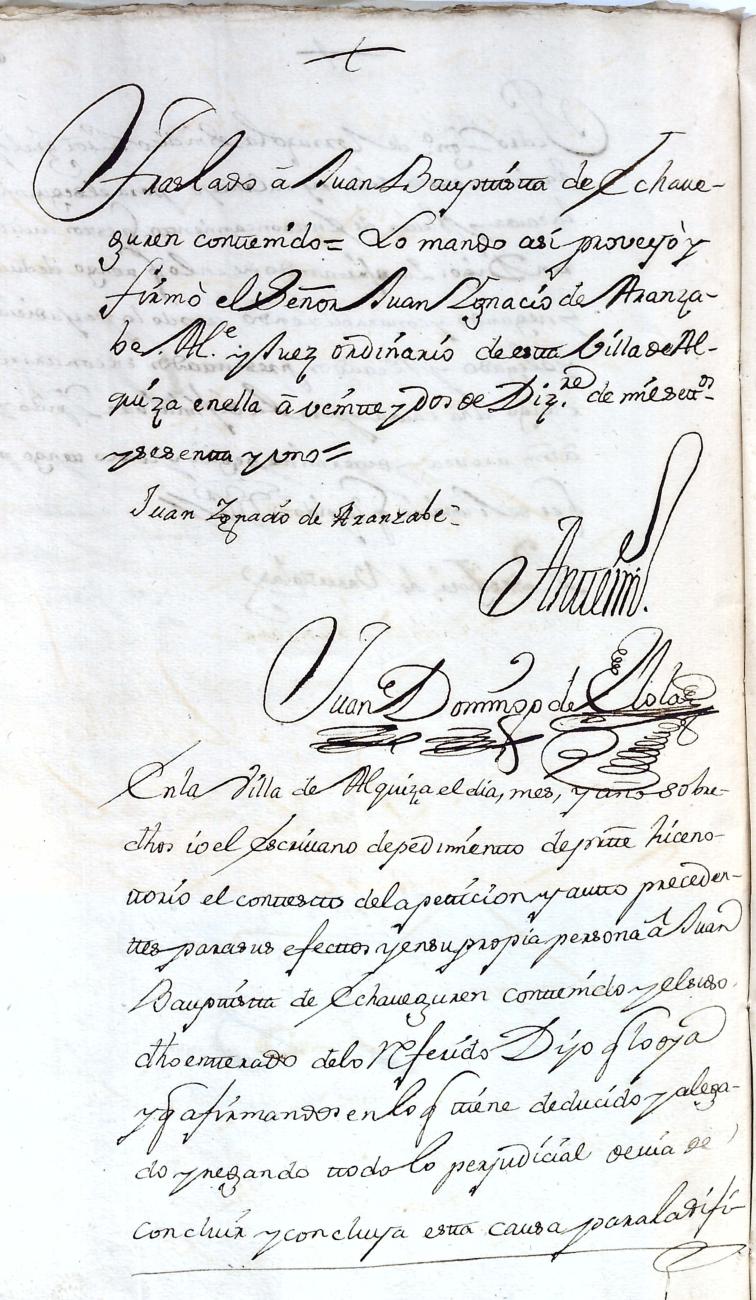 Traslado â Juan Bauptistta de Echave-
guren conttenido = Lo mando asi proveyò y
firmò el Señor Juan Ignacio de Aranza-
be. Al.e y Juez ordinario de estta Villa de Al-
quiza en ella â veintte y dos de Diz.re de mil settos
y sesentta y uno =
Juan Ignacio de Aranzabe
Anttemi.
Juan Domingo de Ollola
En la Villa de Alquiza el dia, mes, y año sobre-
dhos io el Escrivano de pedimientto de partte hice no-
ttorio el conttestto de la petticion y autto preceden-
ttes para sus efecttos y en su propia persona â Juan
Bauptistta de Echaveguren conttenido y el suso-
dho entterado de lo Referido Dijo q lo oya
y q afirmandose en lo q ttiene deducido y alega-
do y negando ttodo lo perjudicial devia de
concluir y concluya estta causa para la difi-